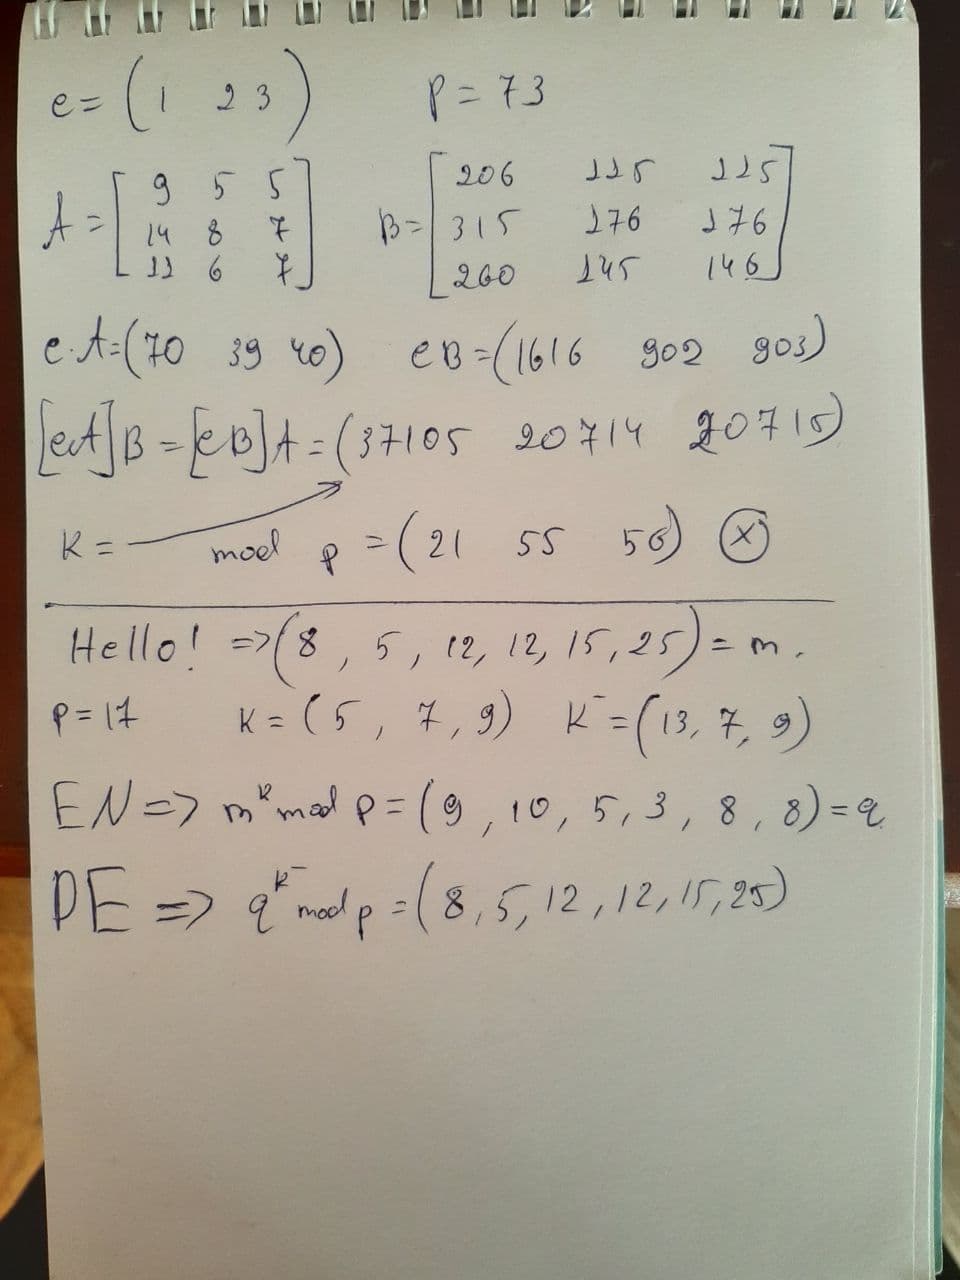 e= (1 2 3) p = 73
A = [9 5 5
14 8 7
11 6 7] B = [206 115 115
315 176 176
260 145 146]
e·A=(70 39 40) eB=(1616 902 903)
[eA]B = [eB]A = (37105 20714 20715)
K = mod p = (21 55 56) ⓧ
Hello! =>(8, 5, 12, 12, 15, 25) = m.
p = 17 K = (5, 7, 9) K⁻=(13, 7, 9)
EN => m^k mod p = (9, 10, 5, 3, 8, 8) = q
DE => q^k⁻ mod p = (8, 5, 12, 12, 15, 25)